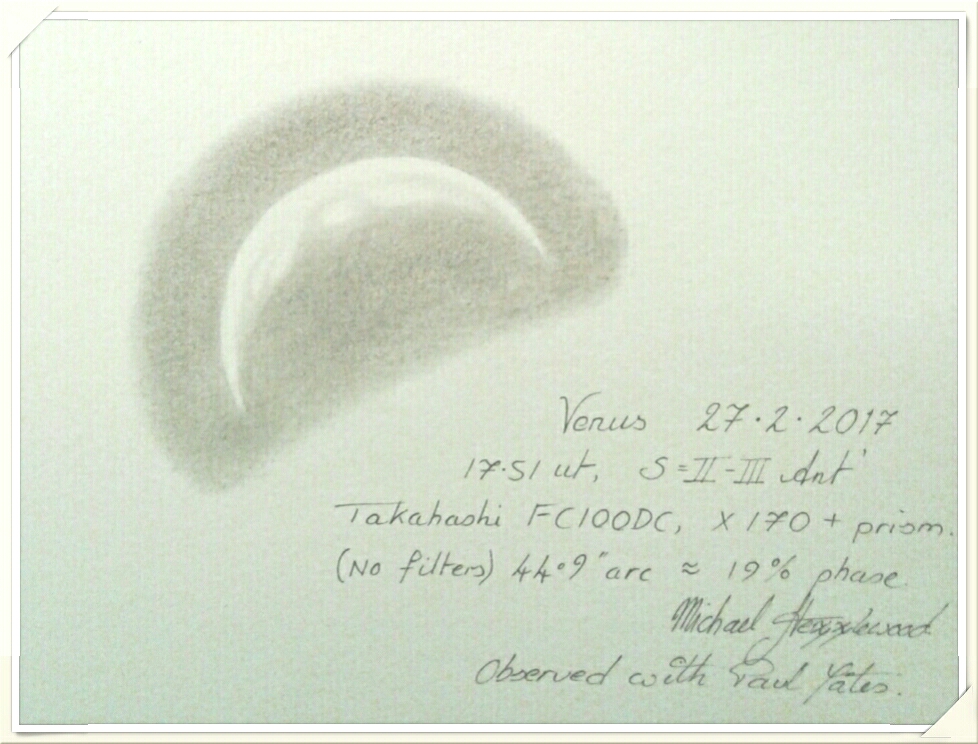 Venus 27.2.2017
17.51 ut, S = II-III Ant'
Takahashi FC100DC, x 170 + prism.
(No filters) 44.9" arc ≈ 19% phase.
Michael
Observed with Paul Yates.